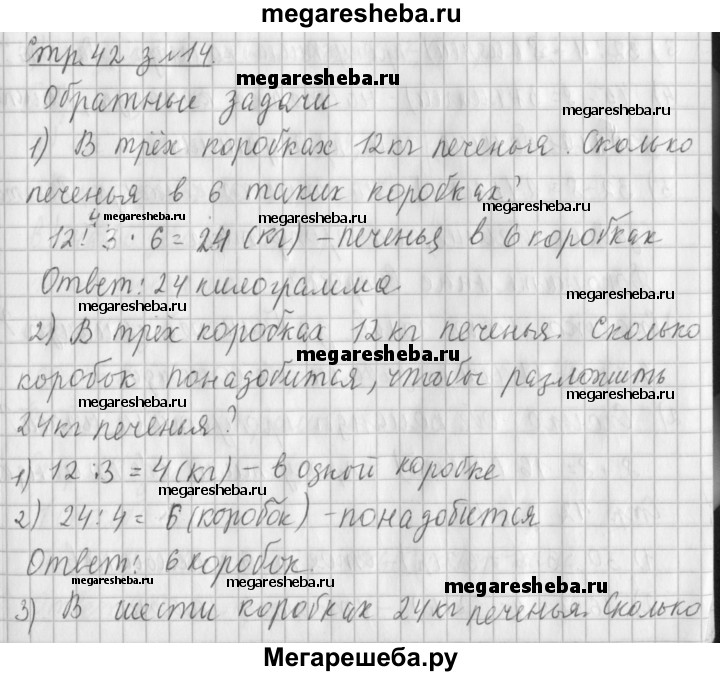 megaresheba.ru
Стр. 42 з №14.
megaresheba.ru
Обратные задачи
megaresheba.ru
1) В трёх коробках 12 кг печенья. Сколько
megaresheba.ru
печенья в 6 таких коробках?
megaresheba.ru
megaresheba.ru
4
12 : 3 · 6 = 24 (кг) – печенья в 6 коробках
Ответ: 24 килограмма
megaresheba.ru
megaresheba.ru
2) В трёх коробках 12 кг печенья. Сколько
megaresheba.ru
коробок понадобится, чтобы разложить
megaresheba.ru
megaresheba.ru
24 кг печенья?
1) 12 : 3 = 4 (кг) – в одной коробке
megaresheba.ru
2) 24 : 4 = 6 (коробок) – понадобится
Ответ: 6 коробок.
megaresheba.ru
megaresheba.ru
megaresheba.ru
3) В шести коробках 24 кг печенья. Сколько
Мегарешеба.ру